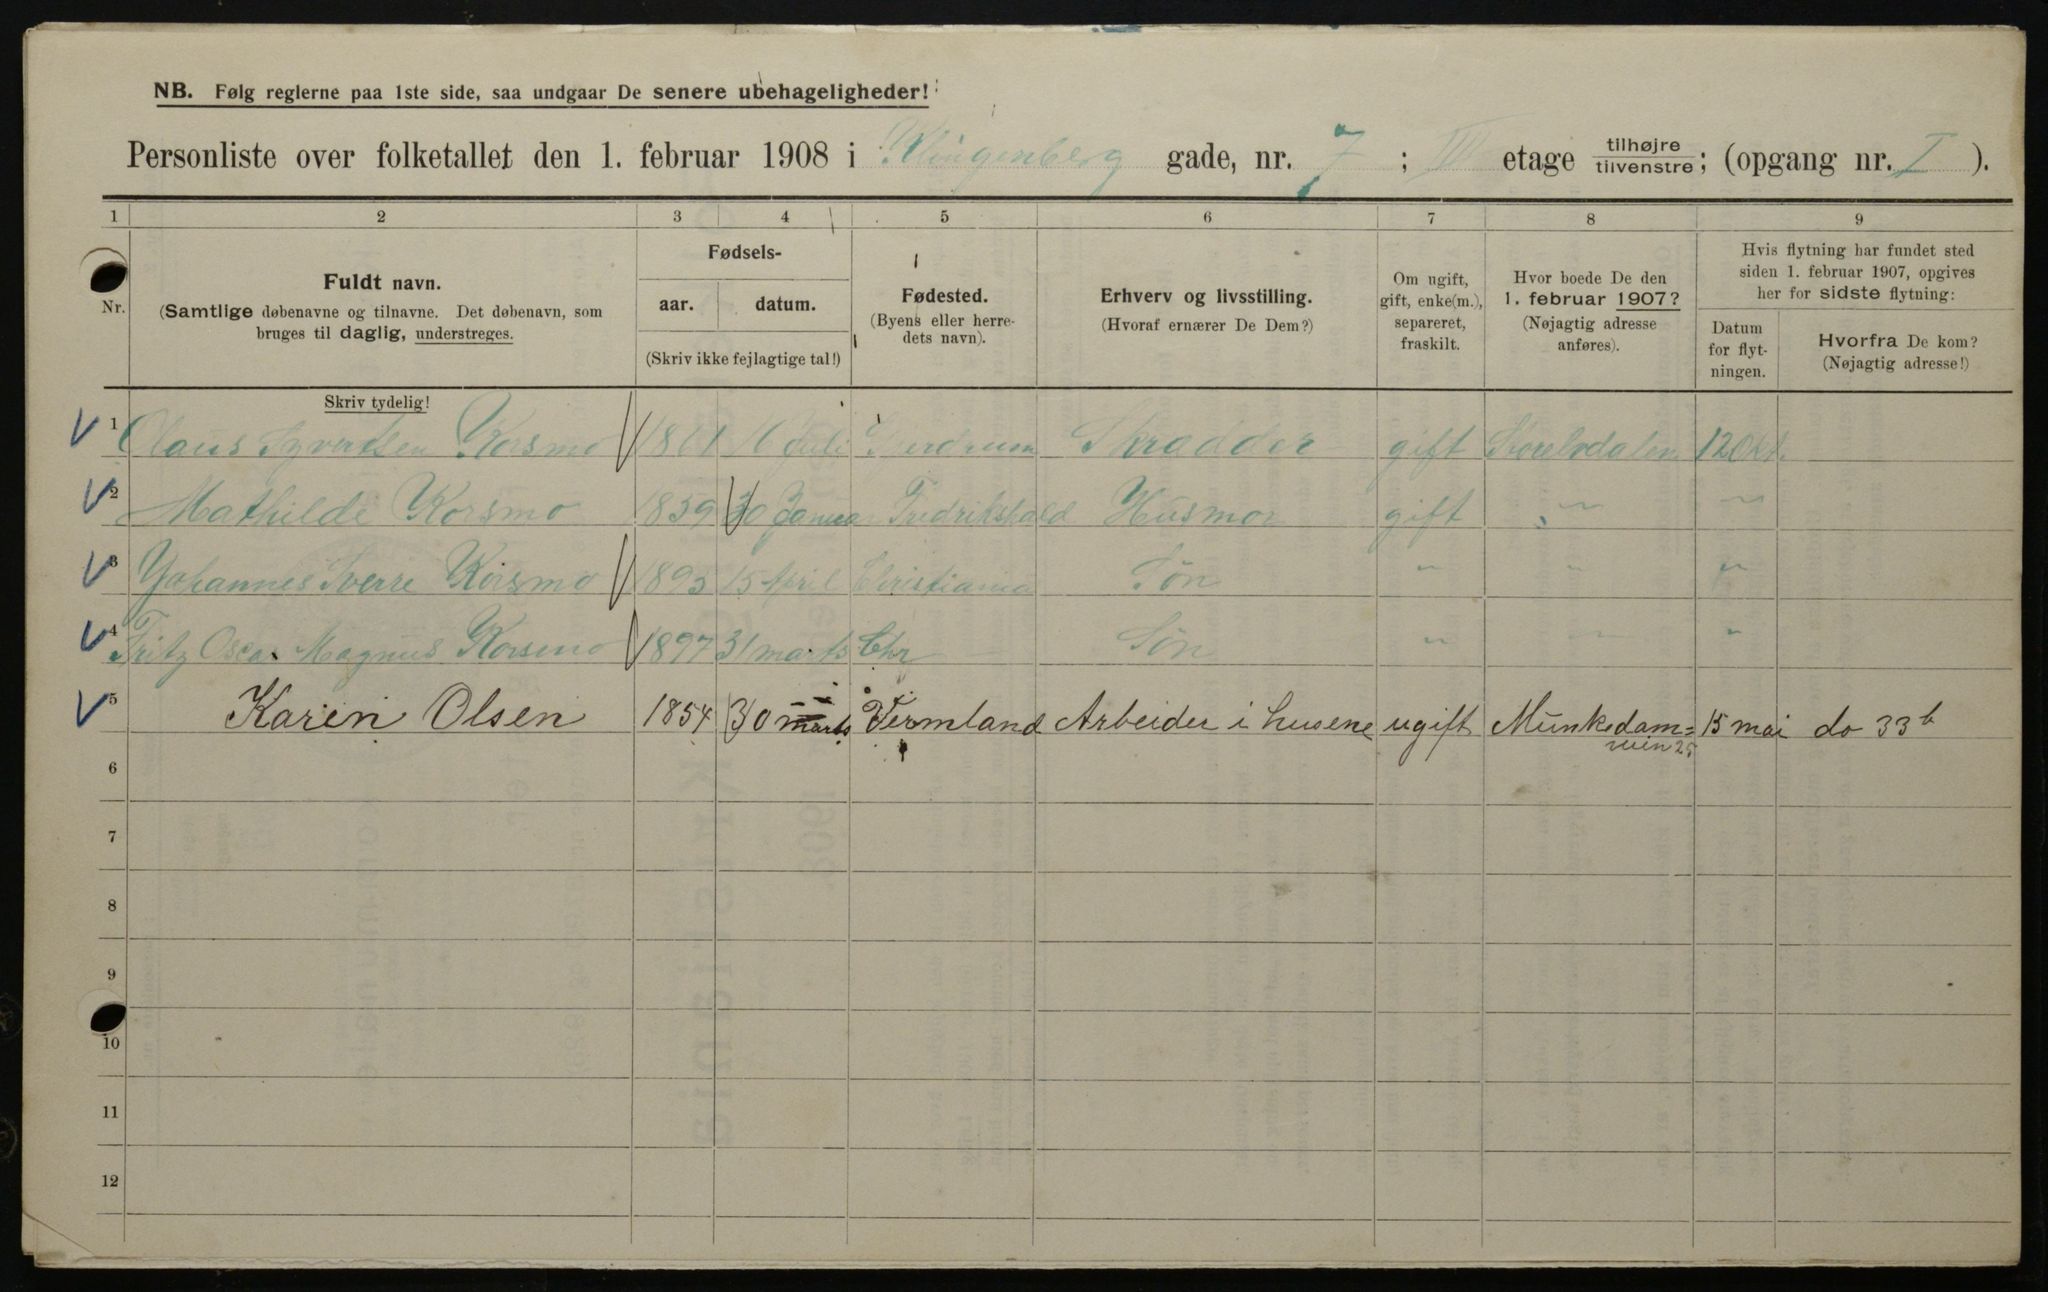 NB. Følg reglerne paa 1ste side, saa undgaar De senere ubehageligheder!
Personliste over folketallet den 1. februar 1908 i Klingenberg gade, nr. 7; III etage tilhøjre tilvenstre; (opgang nr. I).
1 2 3 4 5 6 7 8 9
Nr.
Fuldt navn.
(Samtlige døbenavne og tilnavne. Det døbenavn, som
bruges til daglig, understreges.
Fødsels-
aar. datum.
(Skriv ikke fejlagtige tal!)
Fødested.
(Byens eller herre-
dets navn).
Erhverv og livsstilling.
(Hvoraf ernærer De Dem?)
Om ugift,
gift, enke(m.),
separeret,
fraskilt.
Hvor boede De den
1. februar 1907?
(Nøjagtig adresse
anføres).
Hvis flytning har fundet sted
siden 1. februar 1907, opgives
her for sidste flytning:
Datum
for flyt-
ningen.
Hvorfra De kom?
(Nøjagtig adresse!)
Skriv tydelig!
1 Olaus Syvertsen Korsmo 1861 16 Juli Skrædder gift Storelvdalen 12 Okt.
2 Mathilde Korsmo 1859 30 Januar Fredrikshald Husmor gift " "
3 Johannes Sverre Korsmo 1893 15 April Christiania Søn " " "
4 Fritz Oscar Magnus Korsmo 1897 31 marts Chr Søn " " "
5 Karen Olsen 1854 30 marts Vermland Arbeider i husene ugift Munkedam= 15 mai do 33b
6
7
8
9
10
11
12